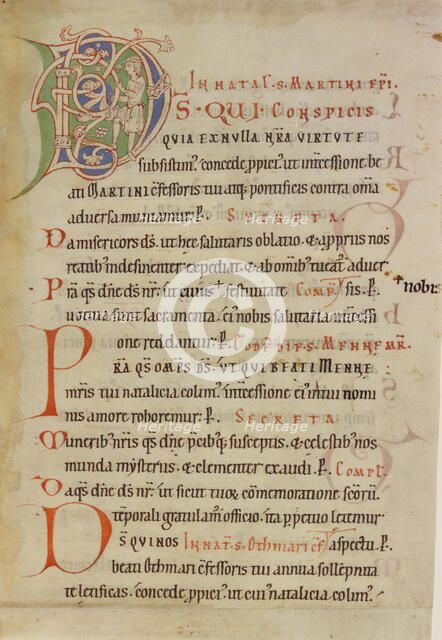 IN NATAL S. MARTINI EPI.
DS QUI CONSPICIS
QUIA EX NULLA NRA VIRTUTE
subsistim' concede ppici' ut intcessione be
ati MARTINI cfessoris tui atq; pontificis contra oma
adversa muniamur. P. SECRETA.
Da misericors ds. ut hec salutaris oblatio. & apprius nos
reatib' indesinenter expediat. & ab omib' tueat' adver
Pra qs dne ds nr. ut cuius festivitate COMPL. sis. P. nobis
votiva sunt sacramenta. ei' nobis salutaria intcessi
one reddantur. P. EOD DIE S. MENNE MR.
PRA QS OMPS DS. UT QUI BEATI MENNE
mris tui natalicia colim'. intcessione ei' in tui nomi
nis amore roboremur. P. SECRETA
Munerib' nris qs dne pcib'q; susceptis. & celestib' nos
munda mysteriis. & clementer exaudi. P. COMPL.
Da qs dne ds nr. ut sicut tuor comemoratione scoru
teporali gratulam' officio. ita ppetuo letemur
DS QUI NOS IN NAT S. OTHMARI CF aspectu. P.
beati Othmari cfessoris tui annua sollepnita
te letificas. concede ppici'. ut cui' natalicia colim'.
Heritage
Heritage
Heritage
Heritage